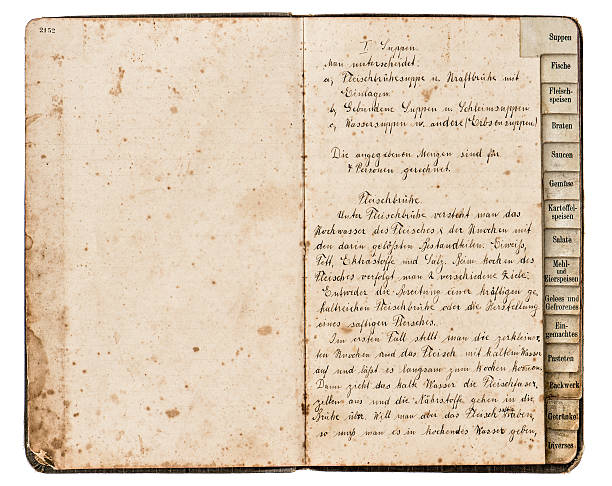 2152
I. Suppen.
Man unterscheidet:
a, Fleischbrühsuppe u. Kraftbrühe mit
Einlagen.
b, Gebundene Suppen u. Schleimsuppen
c, Wassersuppen u. andere (Erbsensuppen)
Die angegebenen Mengen sind für
4 Personen gerechnet.
Fleischbrühe.
Unter Fleischbrühe versteht man das
Kochwasser des Fleisches & der Knochen mit
den darin gelösten Bestandteilen: Eiweiß,
Fett, Extraktstoffe und Salz. Beim Kochen des
Fleisches verfolgt man 2 verschiedene Ziele:
Entweder die Bereitung einer kräftigen ge
haltreichen Fleischbrühe oder die Herstellung
eines saftigen Fleisches.
Im ersten Fall stellt man die zerkleiner
ten Knochen und das Fleisch mit kaltem Wasser
auf und läßt es langsam zum Kochen kommen.
Dann zieht das kalte Wasser die Fleischfaser,
zellen aus und die Nährstoffe gehen in die
Brühe über. Will man aber das Fleisch haben,
so muß man es in kochendes Wasser geben,
Suppen
Fische
Fleisch-
speisen
Braten
Saucen
Gemüse
Kartoffel-
speisen
Salate
Mehl-
und
Eierspeisen
Gelees und
Gefrorenes
Ein-
gemachtes
Pasteten
Backwerk
Getränke
Diverses